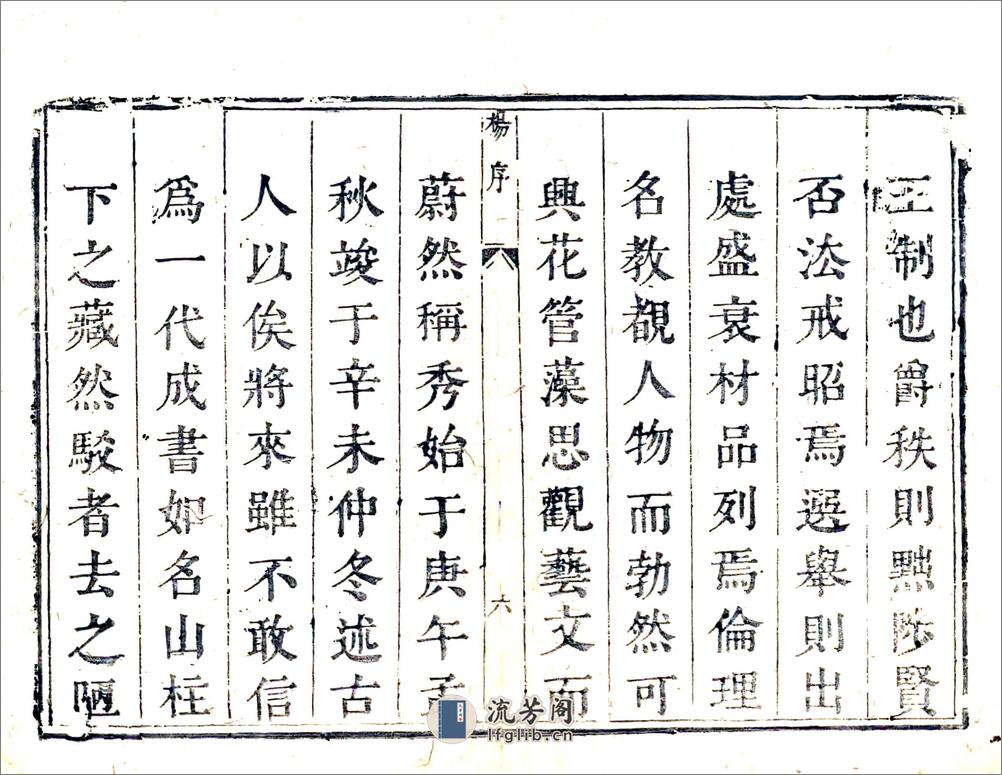 王制也爵秩則黜陟賢
否法戒昭焉選舉則出
處盛衰材品列焉倫理
名教覩人物而勃然可
興花管藻思觀藝文而
楊序
六
蔚然稱秀始于庚午孟
秋竣于辛未仲冬述古
人以俟將來雖不敢信
爲一代成書如名山柱
下之藏然駁者去之陋
流芳阁
lfglib.cn